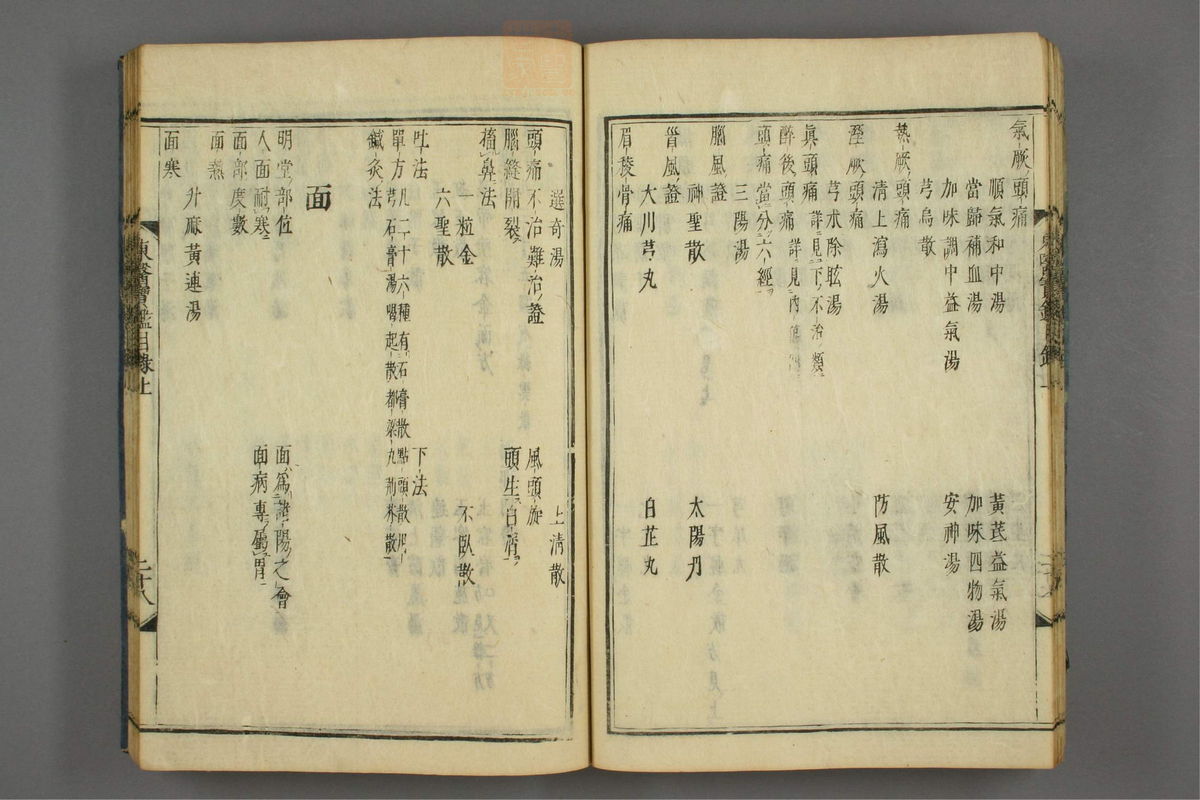 氣厥頭痛
順氣和中湯 黃芪益氣湯
當歸補血湯 加味四物湯
加味調中益氣湯 安神湯
芎烏散
熱厥頭痛
清上瀉火湯 防風散
溼厥頭痛
芎朮除眩湯
眞頭痛 詳見下不治類
醉後頭痛 詳見內傷
頭痛當分六經
三陽湯
腦風證
神聖散 太陽丹
首風證
大川芎丸 白芷丸
眉稜骨痛
選奇湯 上清散
頭痛不治難治證 風頭旋
腦縫開裂 頭生白屑
搐鼻法
一粒金 不臥散
六聖散
吐法 下法
單方 凡二十六種有石膏散點頭散
芎石膏湯喝起散都梁丸荊芥散
鍼灸法
面
明堂部位 面爲諸陽之會
人面耐寒 面病專屬胃
面部度數
面熱
升麻黃連湯
面寒
東醫寶鑑目錄上
二十八